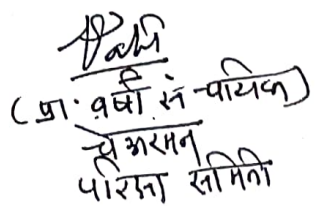 (प्रा. वर्षा सं. पायिक)
चेअरमन
परिक्षा समिती